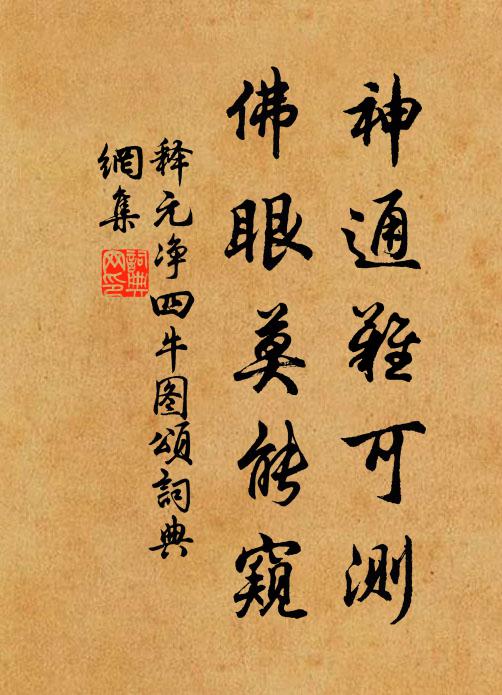 神通难可测
佛眼莫能窥
释元净四牛图颂词典
網集
詞典
网印